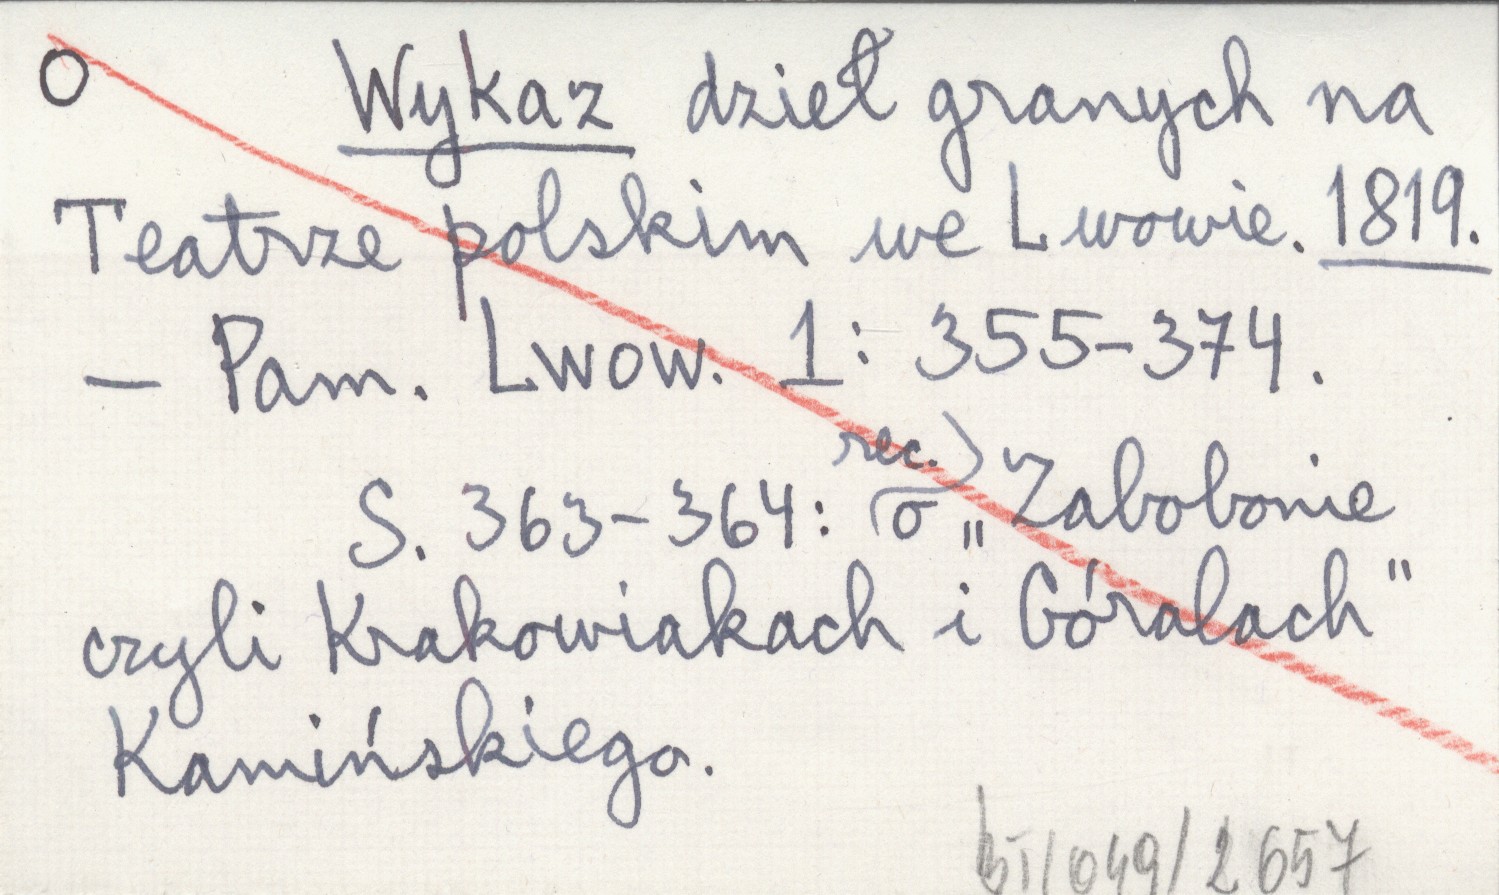 O Wykaz dzieł granych na
Teatrze polskim we Lwowie. 1819.
— Pam. Lwow. 1: 355-374.
rec.
S. 363-364: o „Zabobonie
czyli Krakowiakach i Góralach"
Kamińskiego.
BI/049/2657